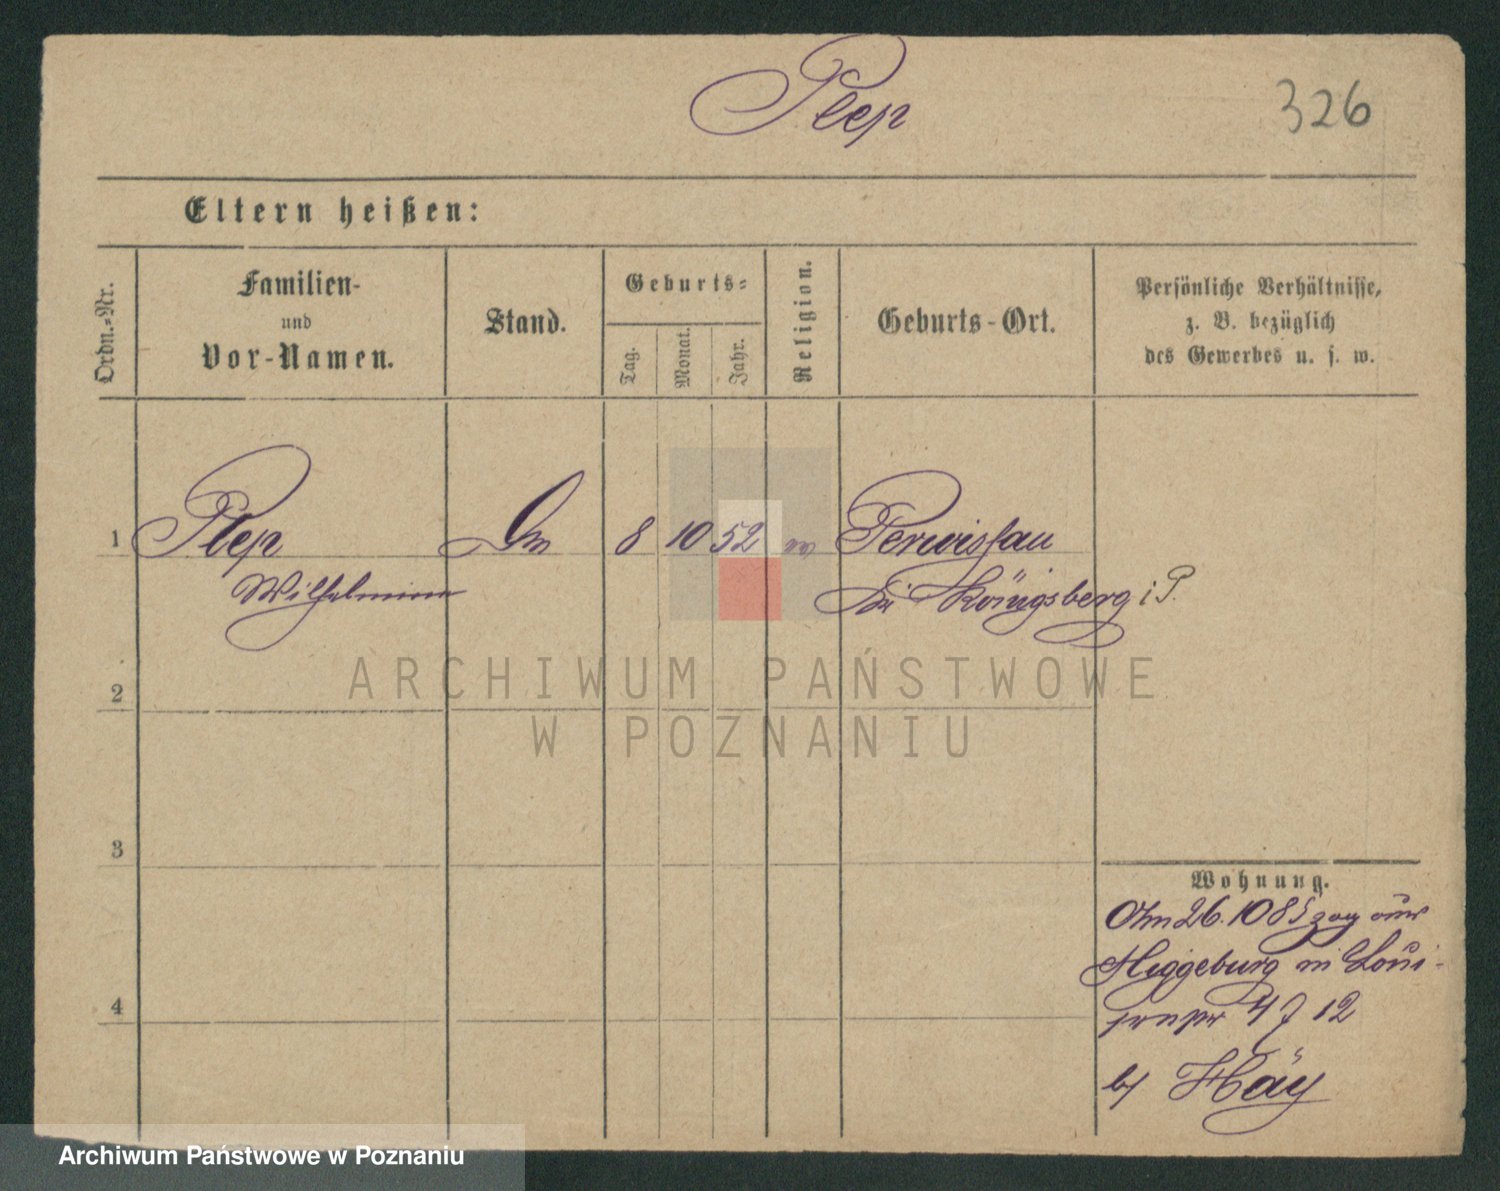 Plep
326
Eltern heißen:
Ordn.-Nr.
Familien-
und
Vor-Namen.
Stand.
Geburts-
Tag.
Monat.
Jahr.
Religion.
Geburts-Ort.
Persönliche Verhältnisse,
z. B. bezüglich
des Gewerbes u. s. w.
1 Plep 8 10 52 Perwissau
Wilhelmine Kr Königsberg i P.
ARCHIWUM PAŃSTWOWE
2
W POZNANIU
3
Wohnung.
Am 26. 10 85 zog aus
in Loui-
4
senstr 4 12
b/ Häy
Archiwum Państwowe w Poznaniu